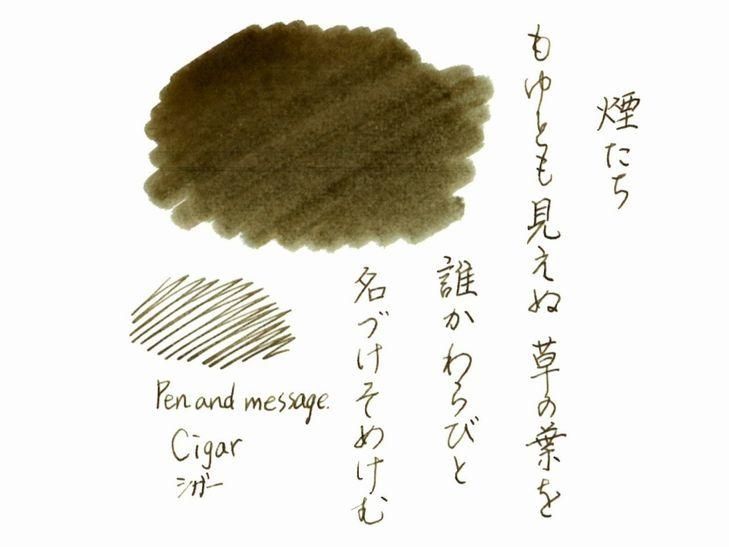 煙たち
もゆとも見えぬ 草の葉を
誰かわらびと
名づけそめけむ
Pen and message.
Cigar
シガー